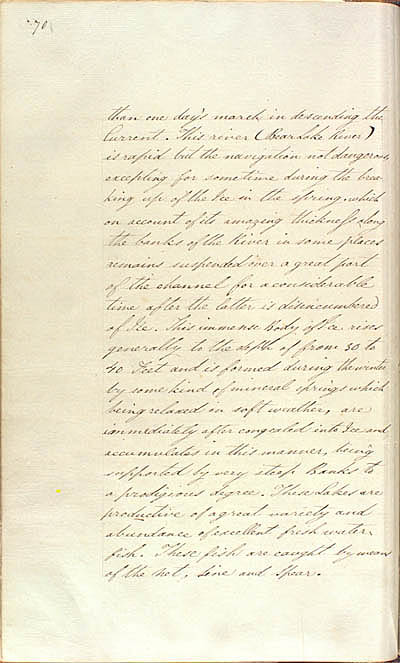 70
than one day's march in descending the
Current. This river (Bear Lake River)
is rapid but the navigation not dangerous,
excepting for sometime during the brea-
king up of the Ice in the spring, which
on account of its amazing thickness along
the banks of the River in some places
remains suspended over a great part
of the channel for a considerable
time after the latter is disencumbered
of Ice. This immense Body of Ice rises
generally to the depth of from 30 to
40 Feet and is formed during the winter
by some kind of mineral springs which
being relaxed in soft weather, are
immediately after congealed into Ice and
accumulates in this manner, being
supported by very steep Banks to
a prodigious degree. These Lakes are
productive of a great variety and
abundance of excellent fresh water
fish. These fish are caught by means
of the Net, Line and Spear.